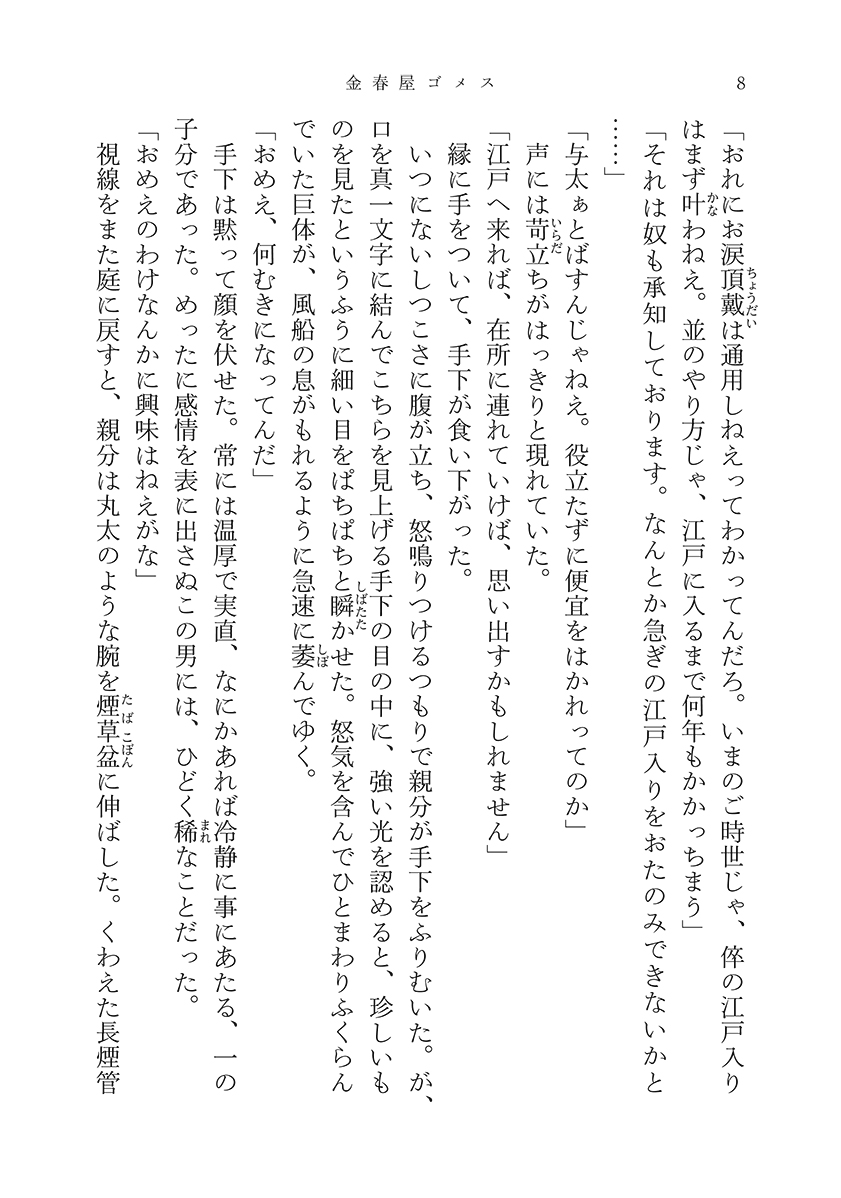 金春屋ゴメス
8
「おれにお涙頂戴は通用しねえってわかってんだろ。いまのご時世じゃ、倅の江戸入り
はまず叶わねえ。並のやり方じゃ、江戸に入るまで何年もかかっちまう」
「それは奴も承知しております。なんとか急ぎの江戸入りをおたのみできないかと
……」
「与太ぁとばすんじゃねえ。役立たずに便宜をはかれってのか」
声には苛立ちがはっきりと現れていた。
「江戸へ来れば、在所に連れていけば、思い出すかもしれません」
縁に手をついて、手下が食い下がった。
いつにないしつこさに腹が立ち、怒鳴りつけるつもりで親分が手下をふりむいた。が、
口を真一文字に結んでこちらを見上げる手下の目の中に、強い光を認めると、珍しいも
のを見たというふうに細い目をぱちぱちと瞬かせた。怒気を含んでひとまわりふくらん
でいた巨体が、風船の息がもれるように急速に萎んでゆく。
「おめえ、何むきになってんだ」
手下は黙って顔を伏せた。常には温厚で実直、なにかあれば冷静に事にあたる、一の
子分であった。めったに感情を表に出さぬこの男には、ひどく稀なことだった。
「おめえのわけなんかに興味はねえがな」
視線をまた庭に戻すと、親分は丸太のような腕を煙草盆に伸ばした。くわえた長煙管